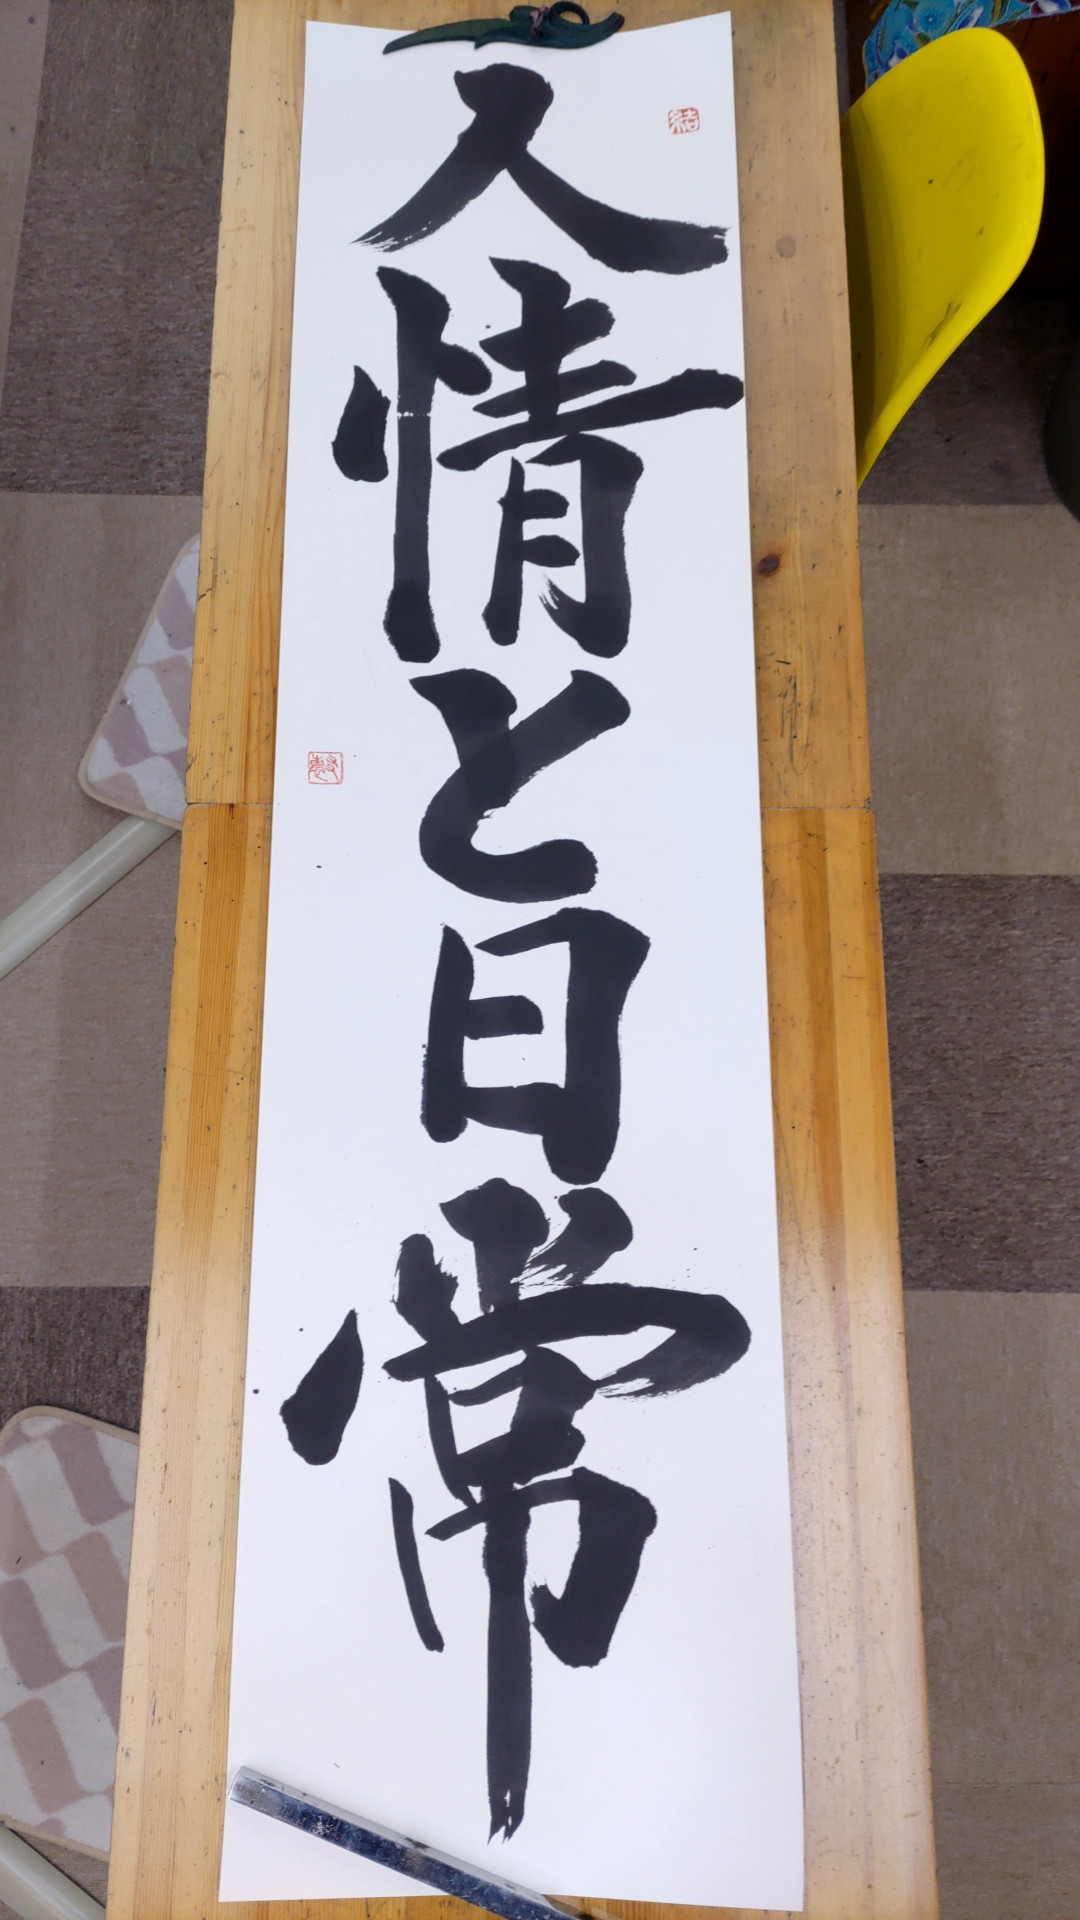 人情と日常
結